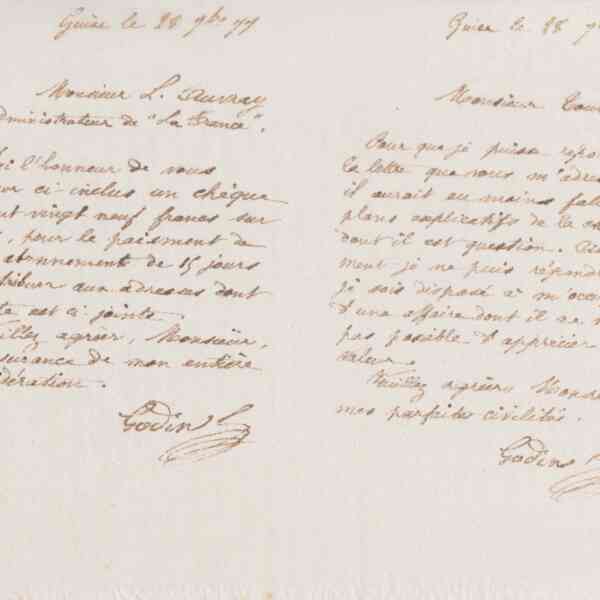 Guise le 28 9bre 77
Monsieur L. Auvray
dministrateur de "La France".
i l'honneur de vous
ci-inclus un chèque
vingt neuf francs sur
, pour le paiement de
abonnements de 15 jours
tribuer aux adresses dont
te est ci jointe.
Veuillez agréer, Monsieur,
surance de mon entière
idération.
Godin
Guise le 28 9
Monsieur
Pour que je puisse répon
la lettre que vous m'adres
il aurait au moins fallu
plans explicatifs de la
dont il est question.
ment je ne puis répondre
je sois disposé à m'occu
d'une affaire dont il ne m
pas possible d'apprécier
valeur.
Veuillez agréer, Monsi
mes parfaites civilités.
Godin